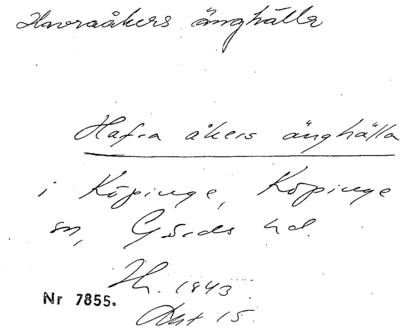 Havraåkers änghälla
Hafra åkers änghälla
i Köpinge, Köpinge
sn, Gärds hd.
Th. 1843.
Nr 7855.
Akt 15.